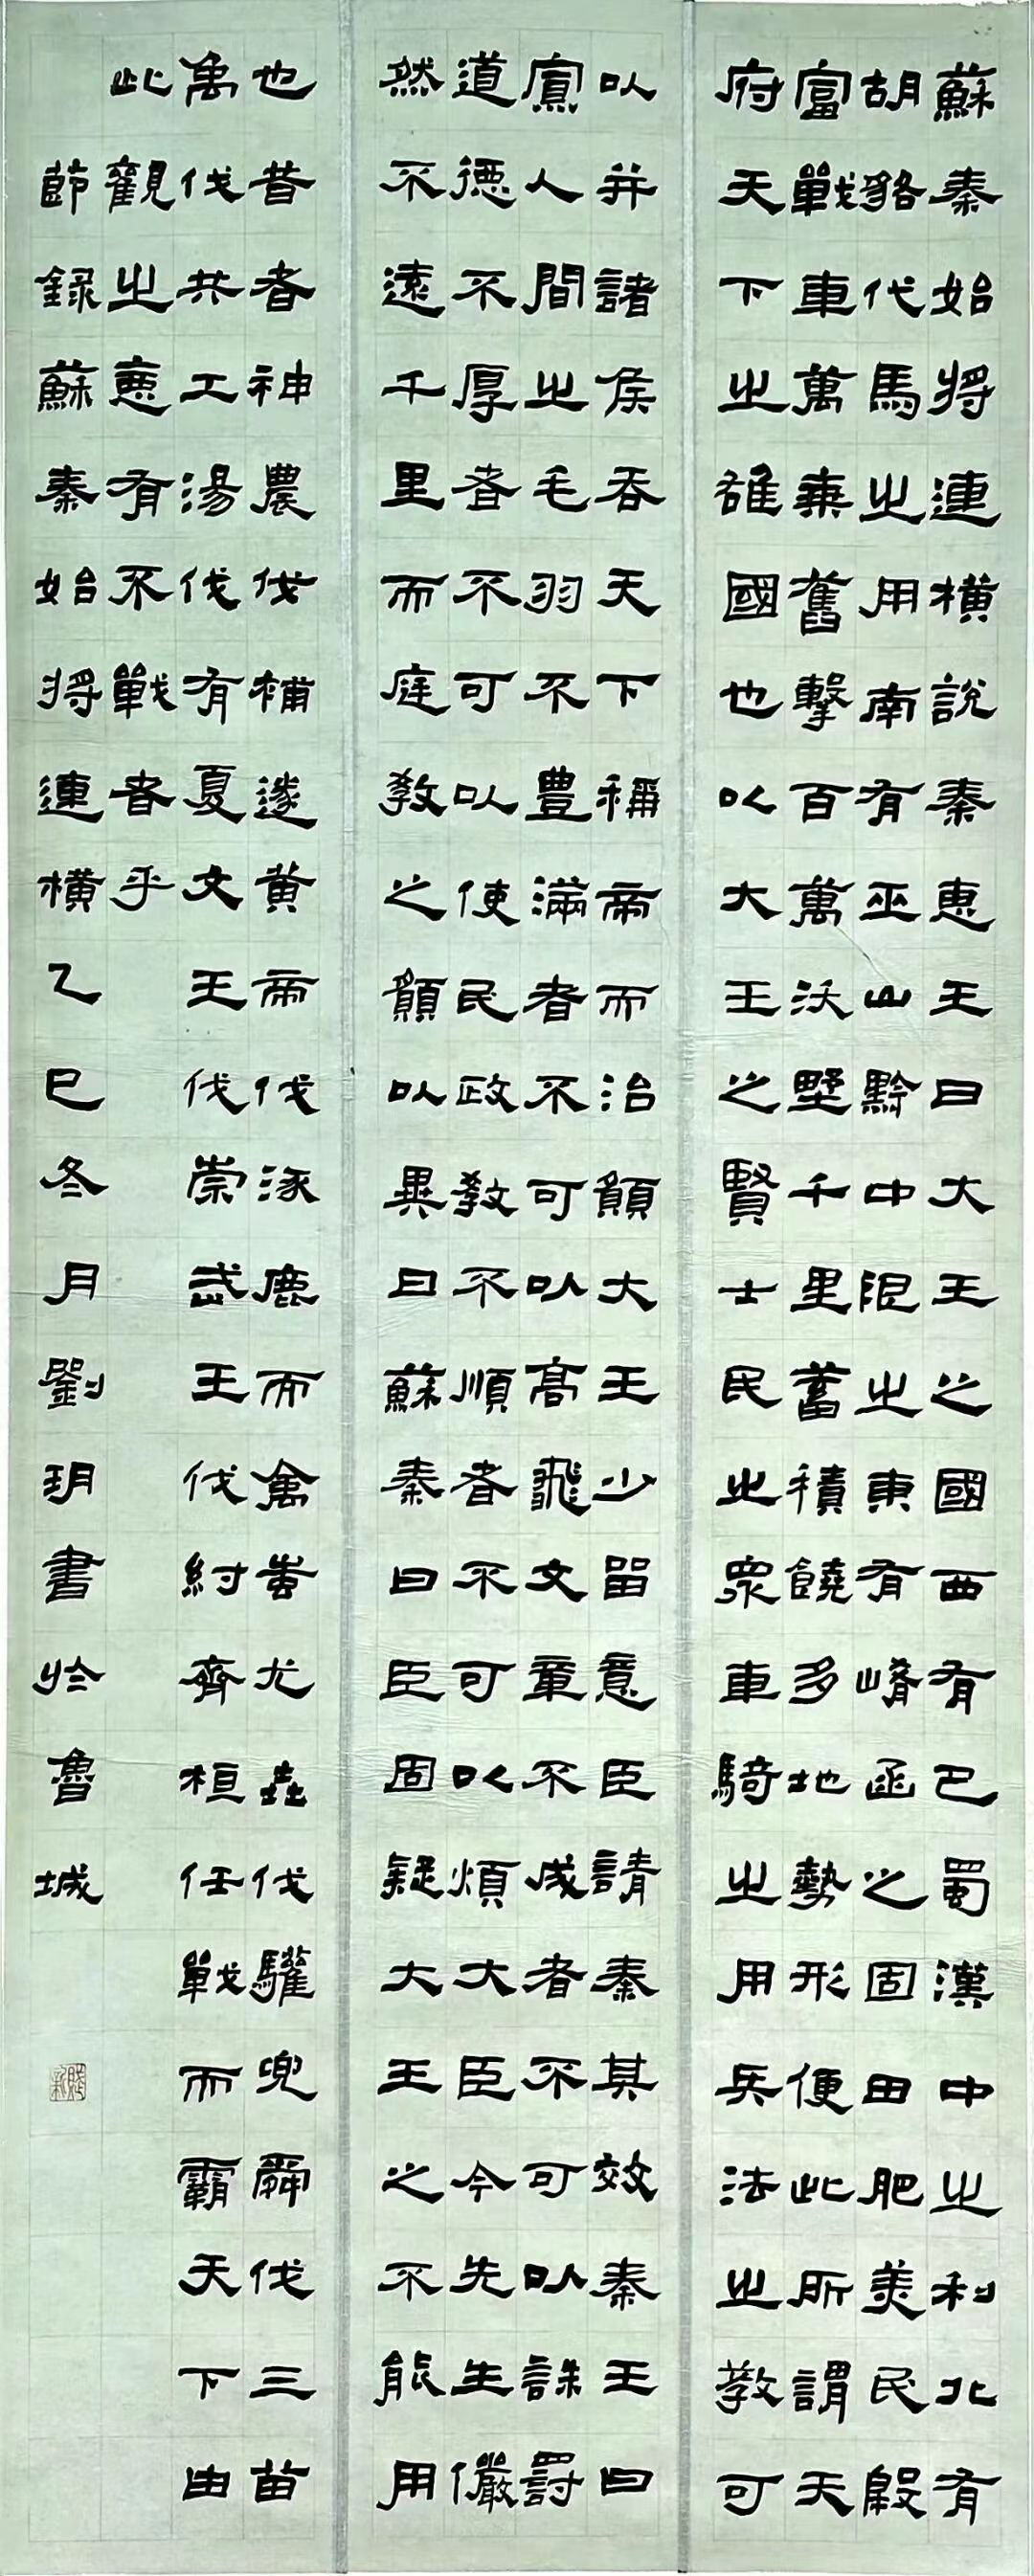 蘇秦始將連橫說秦惠王曰大王之國西有巴蜀漢中之利北有
胡貉代馬之用南有巫山黔中限之東有崤函之固田肥美民殷
富戰車萬乘舊擊百萬沃壄千里蓄積饒多地勢形便此所謂天
府天下之雄國也以大王之賢士民之眾車騎之用兵法之教可
以并諸侯吞天下稱帝而治願大王少留意臣請秦其效秦王曰
寡人間之毛羽不豐滿者不可以高飛文章不成者不可以誅罰
道德不厚者不可以使民政教不順者不可以煩大臣今先生儼
然不遠千里而庭教之願以異日蘇秦曰臣固疑大王之不能用
也昔者神農伐補遂黃帝伐涿鹿而禽蚩尤堯伐驩兜舜伐三苗
禹伐共工湯伐有夏文王伐崇武王伐紂齊桓任戰而霸天下由
此觀之惡有不戰者乎
節錄蘇秦始將連橫乙巳冬月劉玥書於魯城